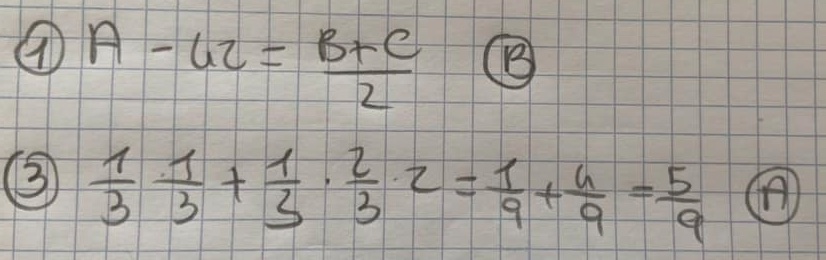 ① A - 42 = B+C/2 Ⓑ
③ 1/3 · 1/3 + 1/3 · 2/3 · 2 = 1/9 + 4/9 = 5/9 Ⓐ